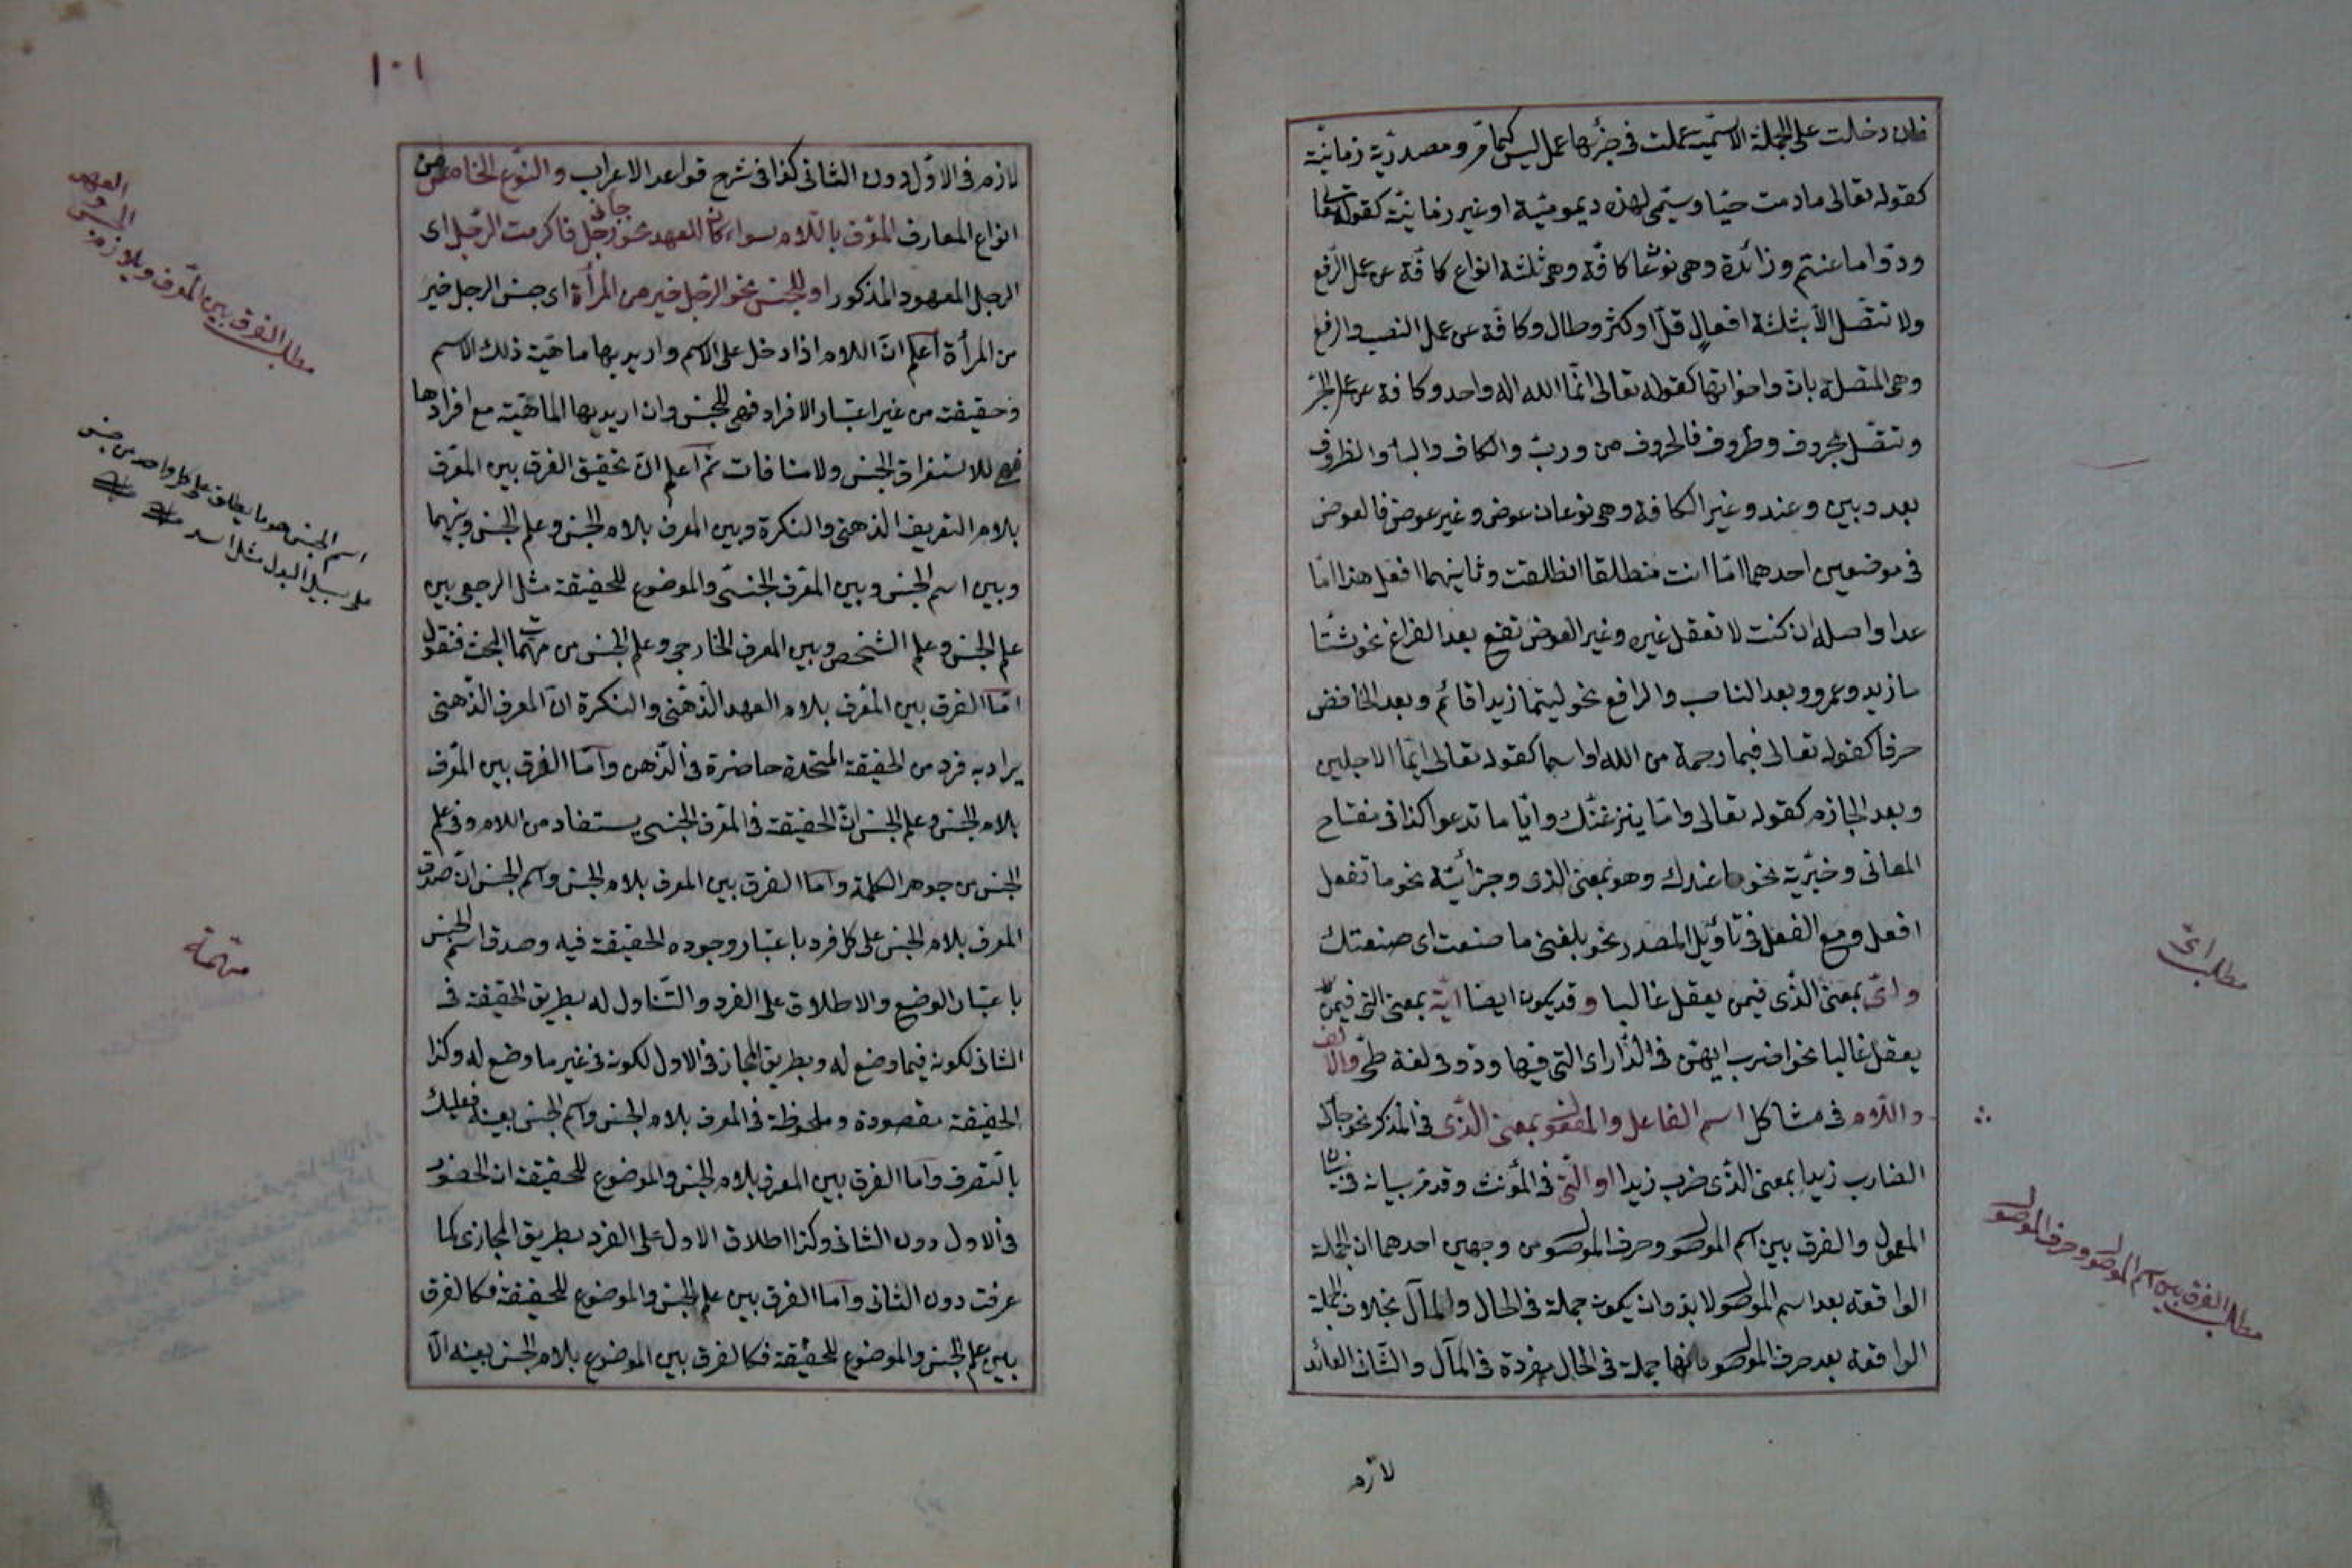 فان دخلت على الجملة الاسمية عملت فى جزئها عمل ليس كما مر ومصدرية زمانية
كقوله تعالى مادمت حيا وسمى لهذه ديمومية او غير زمانية كقوله تعا
ودوا ما عنتم وزائدة وهى نوعا كافة وهى ثلثة انواع كافة عن عمل الرفع
ولا تتصل الا بثلثة افعال قل او كثر وطال وكافة عن عمل النصب والرفع
وهى المتصلة بان واخواتها كقوله تعالى انما الله اله واحد وكافة عن عمل الجر
وتتصل بحروف وظروف فالحروف من ورب والكاف والبا والظروف
بعد وبين وعند وغير الكافة وهى نوعان عوض وغير عوض فالعوض
فى موضعين احدهما اما انت منطلقا انطلقت وثانيهما افعل هذا اما
عدا واصله ان كنت لا تفعل غيره وغير العوض تقع بعد الفراغ نحو شتا
ما زيد وعمرو وبعد الناصب والرافع نحو ليتما زيدا قائم وبعد الخافض
حرفا كقوله تعالى فبما رحمة من الله او اسما كقوله تعالى ايما الاجلين
وبعد الجازم كقوله تعالى واما ينزغنك وايا ما تدعوا كذا فى مفتاح
المعانى وخبرية نحو ما عندك وهو بمعنى الذى وجزائية نحو ما تفعل
افعل ومع الفعل فى تاويل المصدر نحو بلغنى ما صنعت اى صنعتك
واى بمعنى الذى فيمن يعقل غالبا وقد يكون ايضا اية بمعنى التى فيمن
يعقل غالبا نحو اضرب ايهن فى الدار اى التى فيها وذو فى لغة طى والالف
واللام فى مشاكل اسم الفاعل والمفعول بمعنى الذى فى المذكر نحو جائى
الضارب زيدا بمعنى الذى ضرب زيدا او التى فى المؤنث وقد مر بيانه فى
المعمول والفرق بين اسم الموصول وحرف الموصول من وجهين احدهما ان الجملة
الواقعة بعد اسم الموصول لا بد وان يكون جملة فى الحال والمآل بخلاف الجملة
الواقعة بعد حرف الموصول فانها جملة فى الحال مفردة فى المآل والثانى العائد
لازم
مطلب اى
مطلب الفرق بين اسم الموصول وحرف الموصول
١٠١
لازم فى الاول دون الثانى كذا فى شرح قواعد الاعراب والنوع الخامس من
انواع المعارف المعرف باللام سواء كان للعهد نحو جائى رجل فاكرمت الرجل اى
الرجل المعهود المذكور او للجنس نحو الرجل خير من المرأة اى جنس الرجل خير
من المرأة اعلم ان اللام اذا دخل على الاسم واريد بها ماهية ذلك الاسم
وحقيقته من غير اعتبار الافراد فهى للجنس وان اريد بها الماهية مع افرادها
فهى للاستغراق الجنس ولا منافات ثم اعلم ان تحقيق الفرق بين المعرف
بلام التعريف الذهنى والنكرة وبين المعرف بلام الجنس وعلم الجنس وبينهما
وبين اسم الجنس وبين المعرف الجنسى والموضوع للحقيقة مثل الرجعى بين
علم الجنس وعلم الشخص وبين المعرف الخارجى وعلم الجنس من مهمات البحث فنقول
اما الفرق بين المعرف بلام العهد الذهنى والنكرة ان المعرف الذهنى
يراد به فرد من الحقيقة المتحدة حاضرة فى الذهن واما الفرق بين المعرف
بلام الجنس وعلم الجنس ان الحقيقة فى المعرف الجنسى يستفاد من اللام وفى علم
الجنس من جوهر الكلمة واما الفرق بين المعرف بلام الجنس واسم الجنس ان صدق
المعرف بلام الجنس على كل فرد باعتبار وجوده الحقيقة فيه وصدق اسم الجنس
باعتبار الوضع والاطلاق على الفرد والتناول له بطريق الحقيقة فى
الثانى لكونه فيما وضع له وبطريق المجاز فى الاول لكونه فى غير ما وضع له وكذا
الحقيقة مقصودة وملحوظة فى المعرف بلام الجنس واسم الجنس بعينه فعليك
بالتعرف واما الفرق بين المعرف بلام الجنس والموضوع للحقيقة ان الحضور
فى الاول دون الثانى وكذا اطلاق الاول على الفرد بطريق المجازى كما
عرفت دون الثانى واما الفرق بين علم الجنس والموضوع للحقيقة فكالفرق
بين علم الجنس والموضوع للحقيقة فكالفرق بين الموضوع بلام الجنس بعينه الا
مطلب الفرق بين المعرف وبلام
العهد
اسم الجنس هو ما يطلق على كل واحد من جنس
على سبيل البدل مثل اسد
مهمة